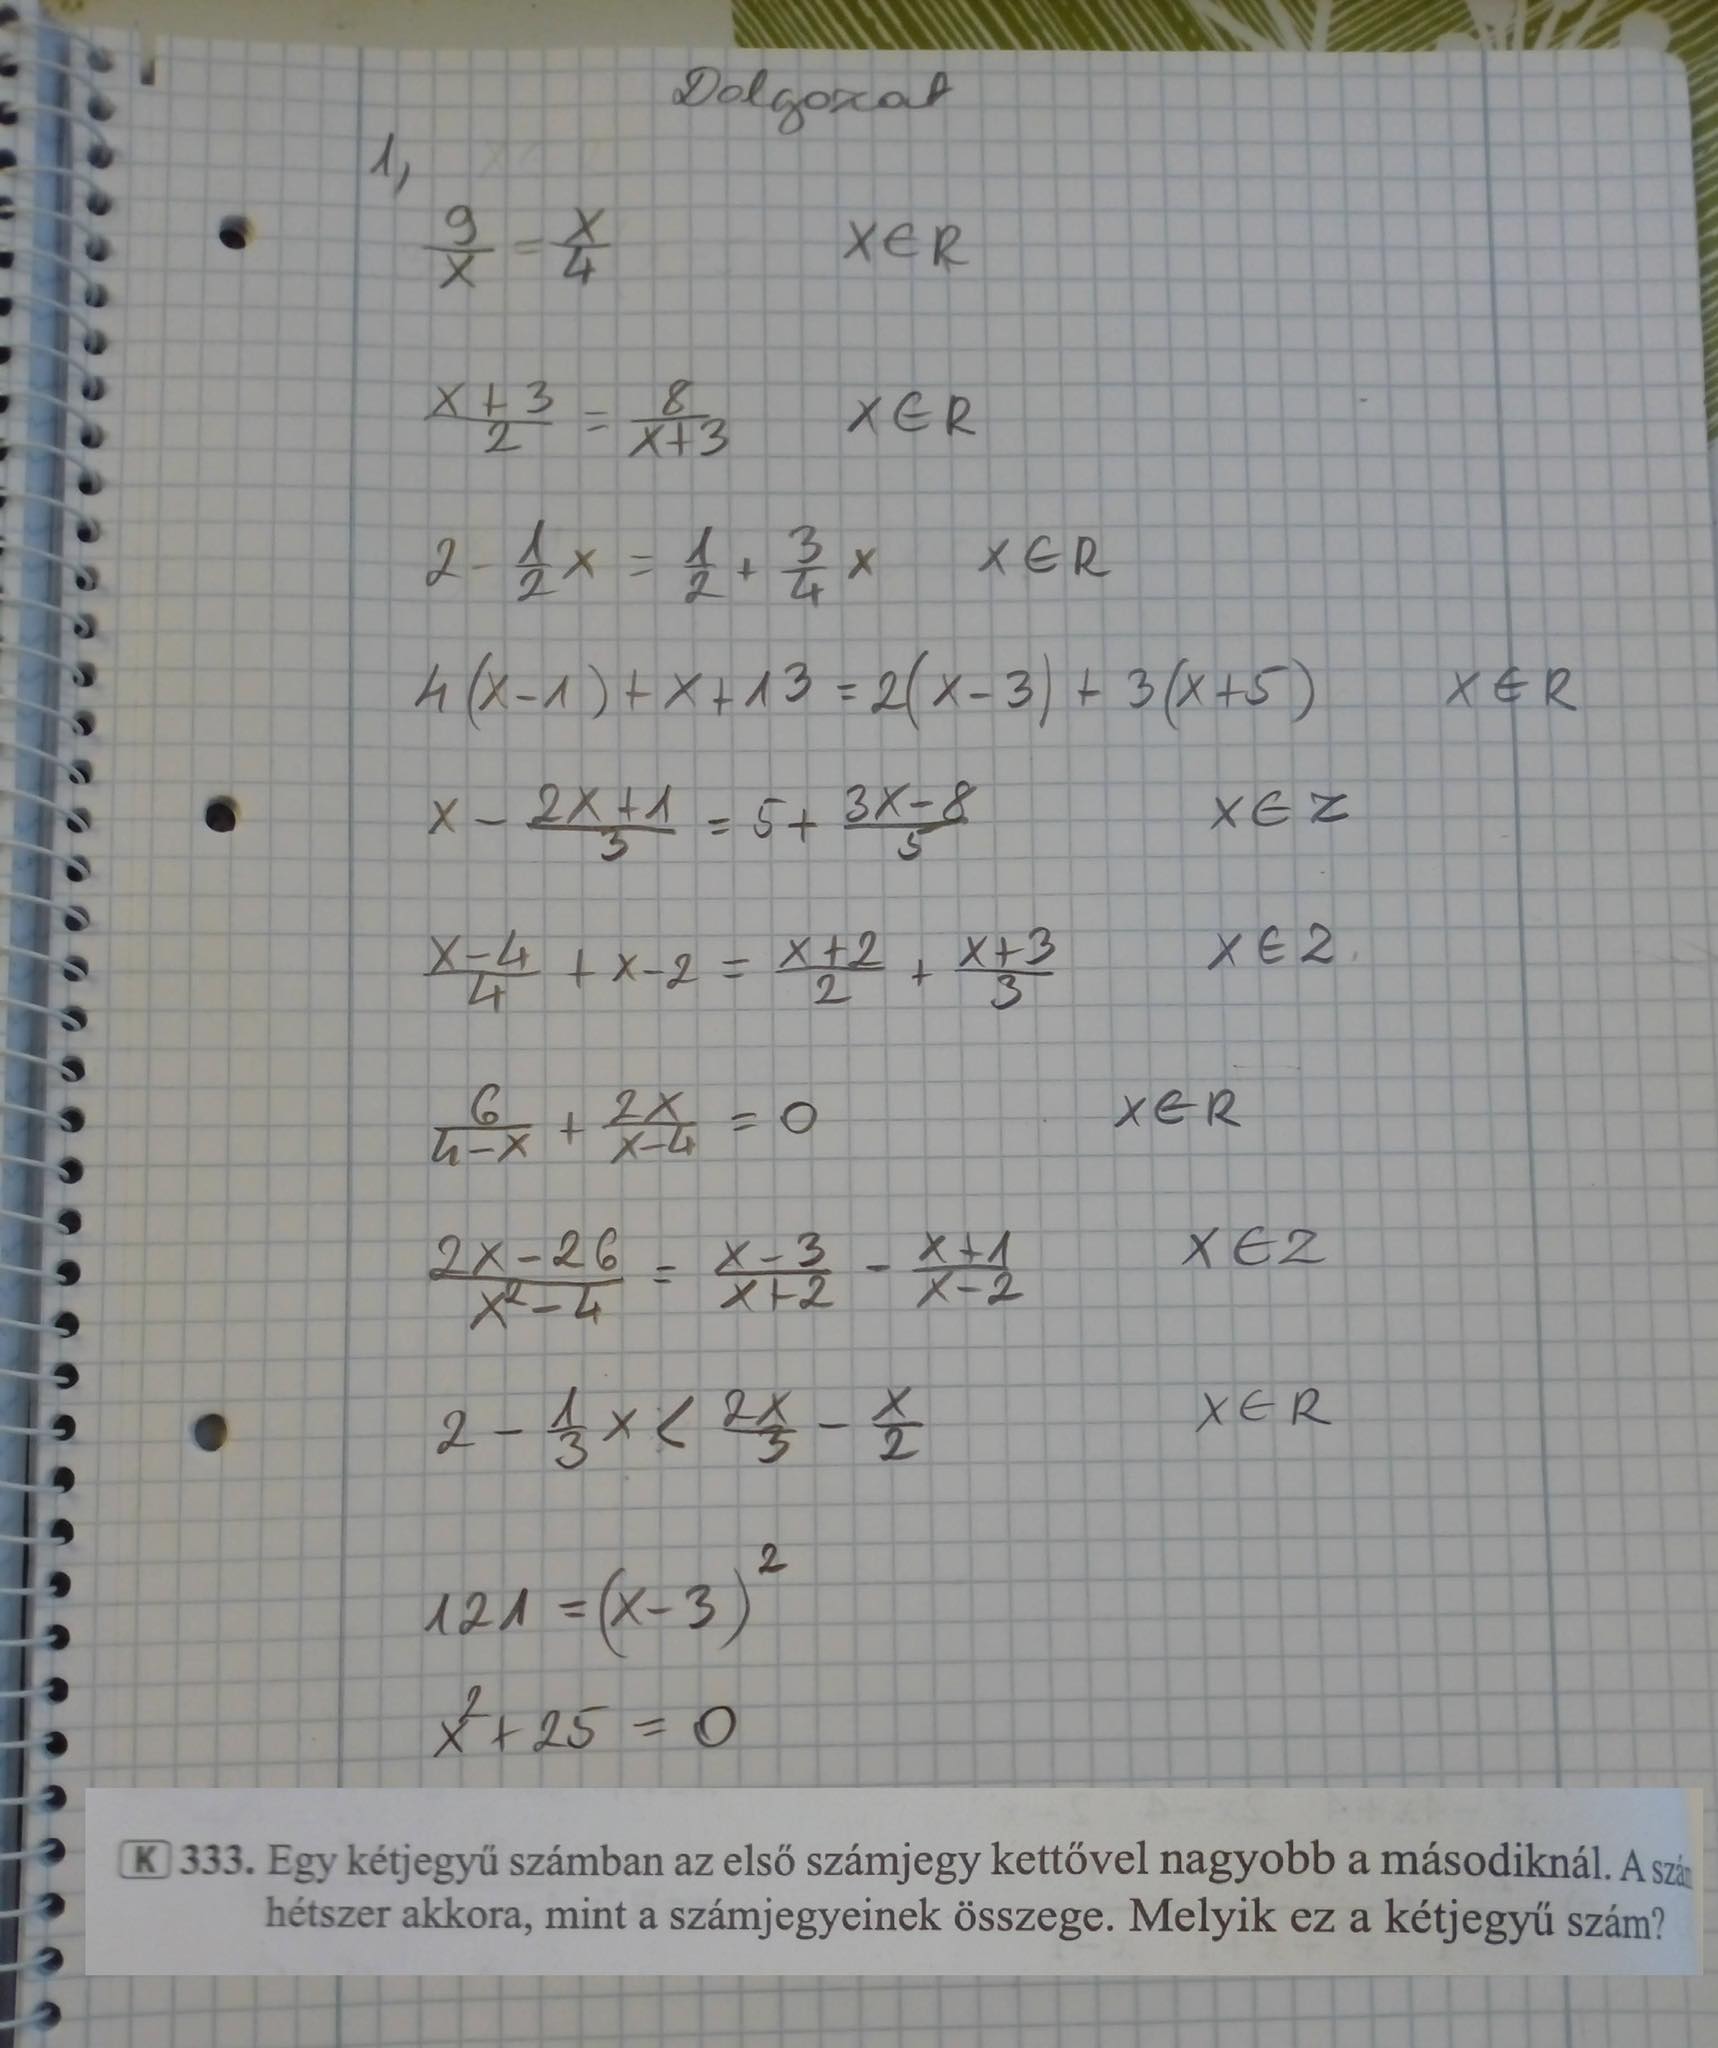 Dolgozat
1,
9/x = x/4 x∈R
x+3/2 = 8/x+3 x∈R
2 - 1/2 x = 1/2 + 3/4 x x∈R
4(x-1)+x+13=2(x-3)+3(x+5) x∈R
x - 2x+1/3 = 5 + 3x-8/5 x∈Z
x-4/4 + x-2 = x+2/2 + x+3/3 x∈Z
6/4-x + 2x/x-4 = 0 x∈R
2x-26/x²-4 = x-3/x+2 - x+1/x-2 x∈Z
2 - 1/3 x < 2x/3 - x/2 x∈R
121 = (x-3)²
x²+25 = 0
K 333. Egy kétjegyű számban az első számjegy kettővel nagyobb a másodiknál. A
hétszer akkora, mint a számjegyeinek összege. Melyik ez a kétjegyű szám?